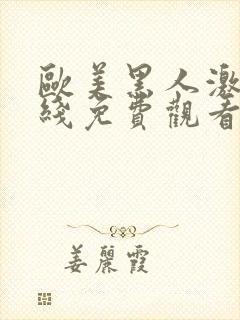 歐美黑人激
綫免費觀看
姜麗霞